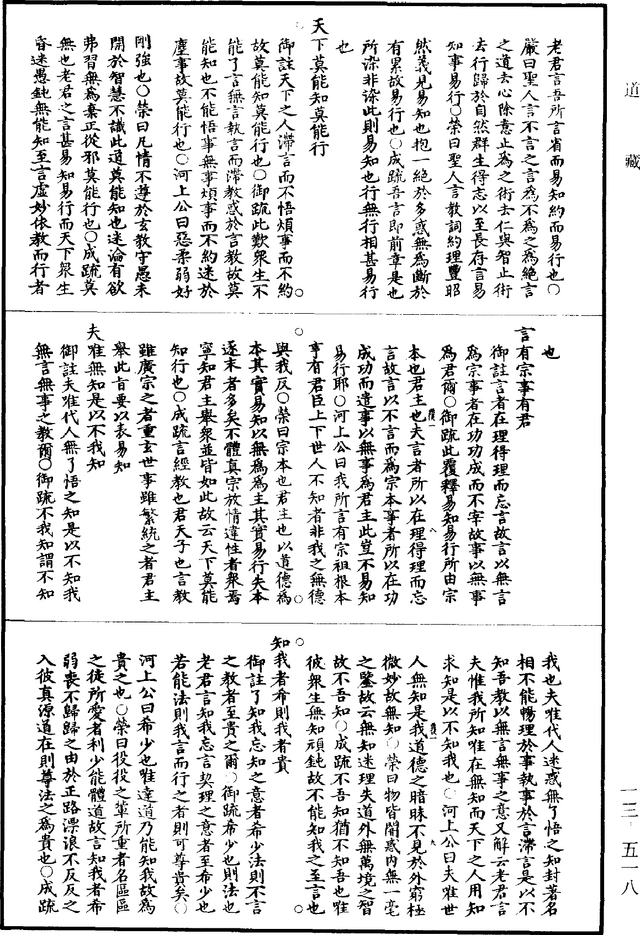 道藏
老君言吾所言省而易知約而易行也○
嚴曰聖人言不言之言為不為之為絕言
之道去心除意止為之術去仁與智止術
去行歸於自然群生得志以至長存言易
知事易行○榮曰聖人言教詞約理豐昭
然義見易知也抱一絕於多惑無為斷於
有累故易行也○成疏吾言即前章是也
所染非染此則易知也行無行相甚易行
也
天下莫能知莫能行
御註天下之人滯言而不悟煩事而不約
故莫能知莫能行也○御疏此歎眾生不
能了言無言執言而滯教惑於言教故莫
能知也不能悟事無事煩事而不約迷於
塵事故莫能行也○河上公曰惡柔弱好
剛強也○榮曰凡情不遵於玄教守愚未
開於智慧不識此道莫能知也迷淪有欲
弗習無為棄正從邪莫能行也○成疏莫
無也老君之言甚易知易行而天下眾生
昏迷愚鈍無能知至言虛妙依教而行者
也
言有宗事有君
御註言者在理得理而忘言故言以無言
為宗事者在功功成而不宰故事以無事
為君爾○御疏此覆釋易知易行所由宗
本也君主也夫言者所以在理得理而忘
言故言以不言而為宗本事者所以在功
成功而遣事以無事為君主此豈不易知
易行耶○河上公曰我所言有宗祖根本
事有君臣上下世人不知者非我之無德
與我反○榮曰宗本也君主也以道德為
本其實易知以無為為主其實易行失本
逐末者多矣不體真宗放情違性者眾焉
寧知君主舉眾並皆如此故云天下莫能
知行也○成疏言經教也君天子也言教
雖廣宗之者重玄世事雖繁統之者君主
舉此旨要以表易知
夫唯無知是以不我知
御註夫唯代人無了悟之知是以不知我
無言無事之教爾○御疏不我知謂不知
我也夫唯代人迷惑無了悟之知封著名
相不能暢理於事執事於言滯言是以不
知吾教以無言無事之意又解云老君言
夫惟我所知唯在無知而天下之人用知
求知是以不知我也○河上公曰夫唯世
人無知是我道德之暗昧不見於外窮極
微妙故無知○榮曰物皆闇惑內無一毫
之鑒故云無知迷理失道外無萬境之智
故不吾知○成疏不吾知猶不知吾也唯
彼眾生無知頑鈍故不能知我之至言也
知我者希則我者貴
御註了知我忘知之意者希少法則不言
之教者至貴之爾○御疏希少也則法也
老君言知我忘言契理之意者至希少也
若能法則我言而行之者則可尊貴矣○
河上公曰希少也唯達道乃能知我故為
貴之也○榮曰役役之輩所重者名區區
之徒所愛者利少能體道故言知我者希
弱喪不歸歸之由於正路漂浪不反反之
入彼真源道在則尊法之為貴也○成疏
一三·五一八